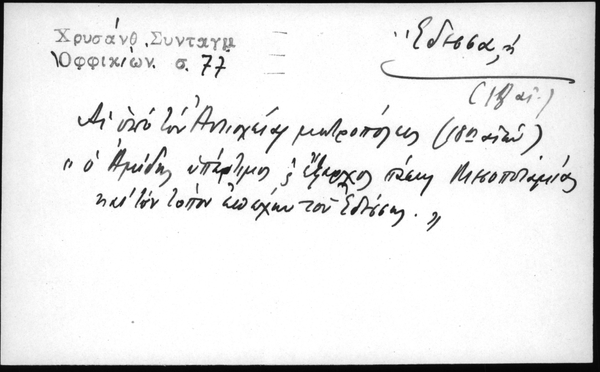 Χρυσάνθ. Συνταγμ
Ὀφφικίων. σ. 77
Ἔδεσσα, ἡ
(18 αἰ.)
Αἱ ὑπὸ τὸν Ἀντιοχείας μητροπόλεις (18ου αἰῶν)
" ὁ Ἀμίδης ὑπέρτιμος & ἔξαρχος πάσης Μεσοποταμίας
καὶ τὸν τόπον ἐπέχων τοῦ Ἐδέσσης. "